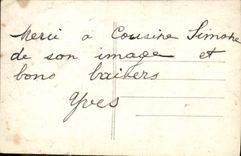 Merci a Cousine Simone
de son image et
bons baisers
Yves